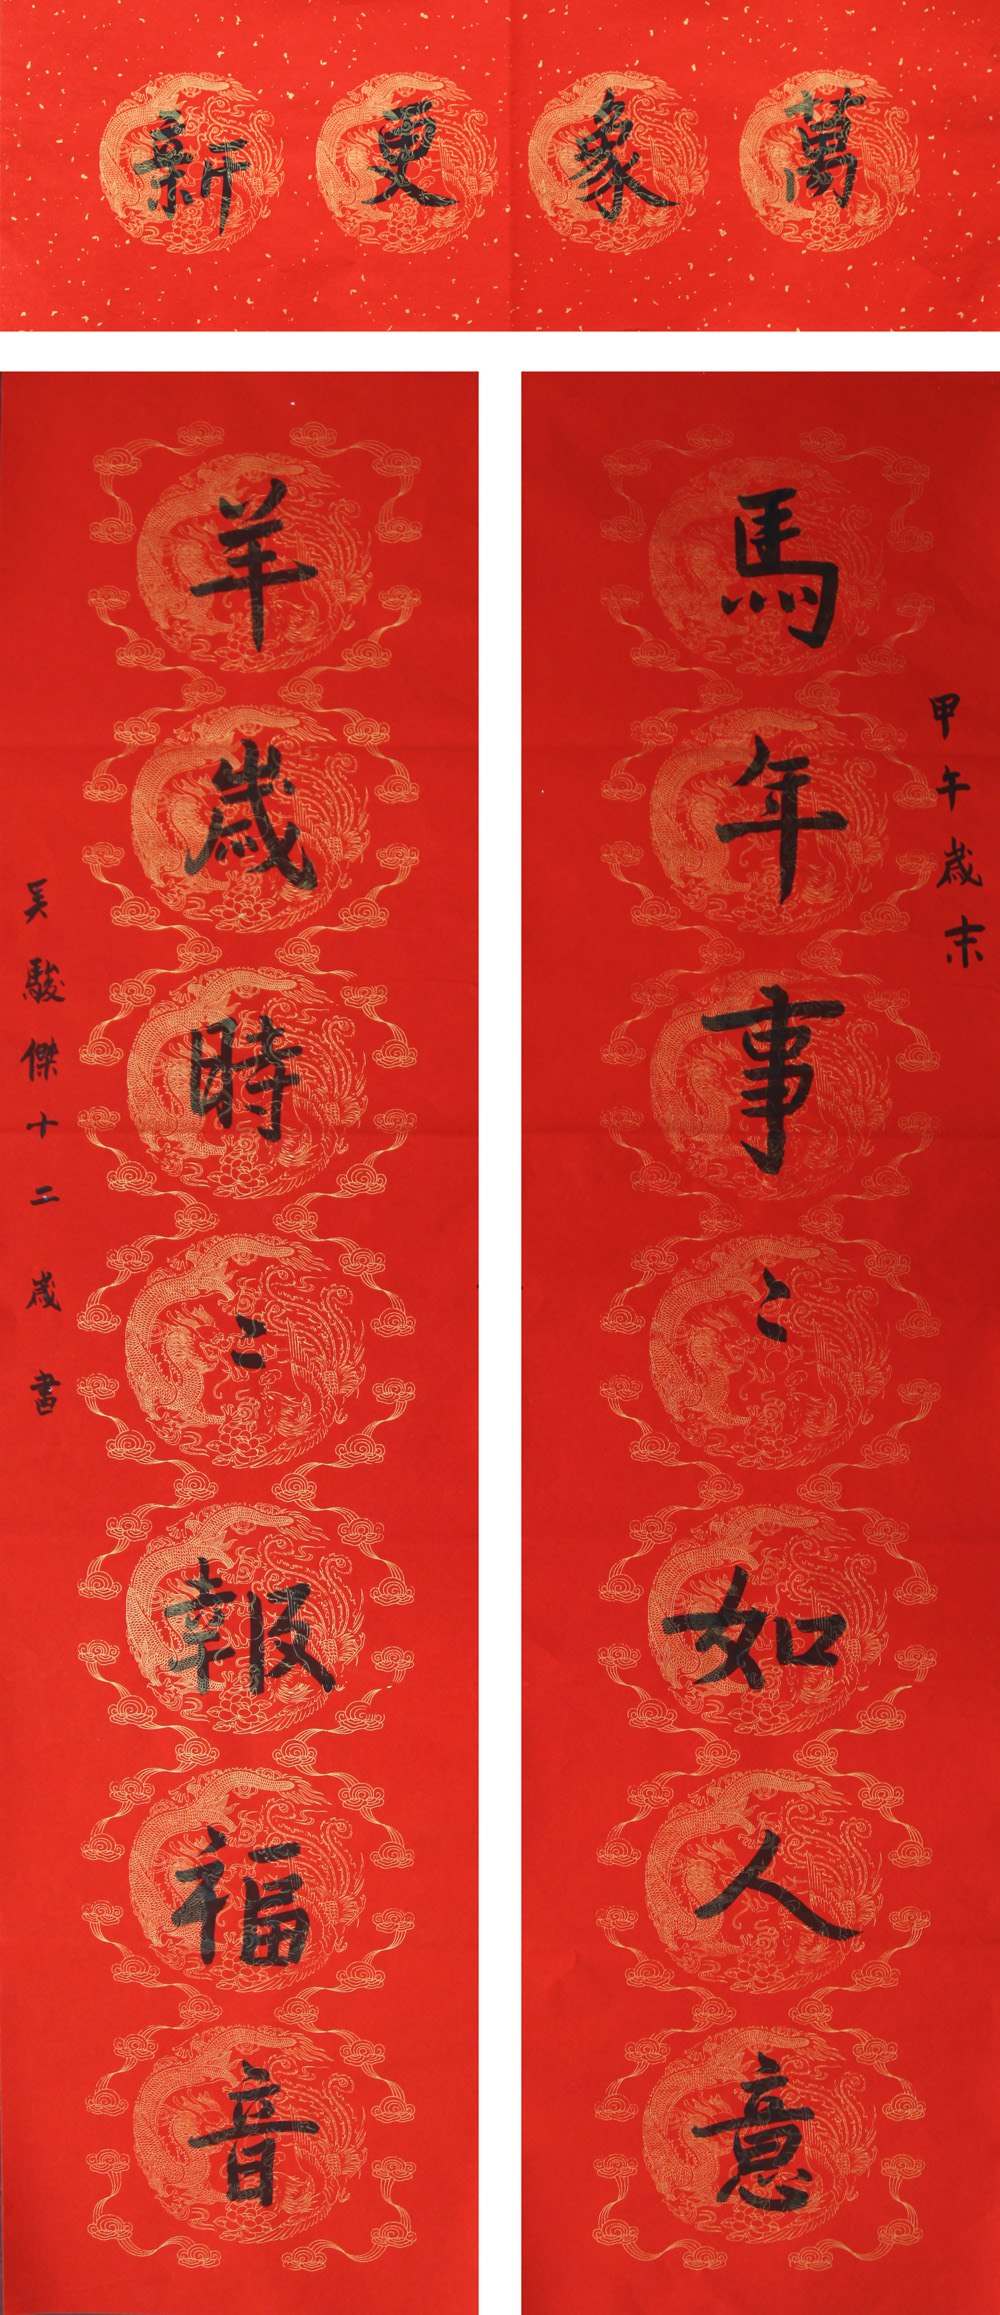 萬象更新
甲午歲末
馬年事〻如人意
羊歲時〻報福音
吳駿傑十二歲書